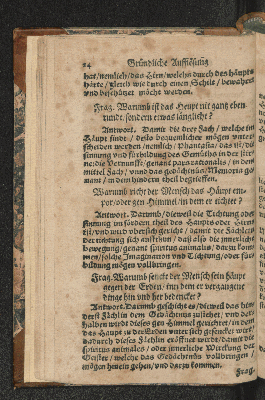 24 Gründliche Aufflösung
hat / nemlich / das Hirn / welchs durch des häupts
härte / gleich wie durch einen Schilt / bewahret
und beschützet möcht werden.
Frag. Warumb ist das Heupt nit gantz eben
rundt, sondern etwas länglicht?
Antwort. Damit die drey Fach / welche im
Häupt sindt / desto bequemlicher mögen unter-
scheiden werden / nemlich / Phantasia / das ist / die
sinnung und fürbildung des Gemühts in der
die Vernunfft / genant pars rationalis / in dem
mittel Fach / unnd das gedächtnüs / Memoria ge-
nant / in dem hindern theil begriffen.
Warumb richt der Mensch das Häupt em-
por / oder gen Himmel / in dem er tichtet?
Antwort. Darumb / dieweil die Tichtung oder
sinnung im fördern theil des Haupts oder Hirns
ist / und wird übersich gericht / damit die Fächlein
der tichtung sich auffthun / daß also die innerliche
bewegung / genant spiritus animales / darin kom-
men / solche Imagination und Tichtung / oder für-
bildung mögen vollbringen.
Frag. Warumb sencket der Mensch sein häupt
gegen der Erden / inn dem er vergangene
dinge bin und her bedencket?
Antwort. Darumb geschicht es / dieweil das hin-
derst Fächlin dem Gedächtnus zustehet / und der-
halben würdt dieses gen Himmel gerichtet / in dem
das Haupt zu der Erden unter sich gesencket wirt /
dadurch dieses Fächlin eröffnet wirdt / damit die
spiritus animales / oder innerliche Wirckung der
Geister / welche das Gedächtnüs vollbringen /
mögen hinein gehen / und darzu kommen.
Frag.